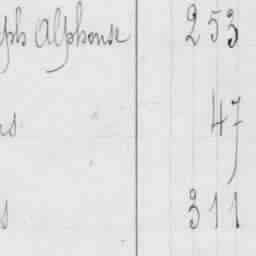 eph Alphonse 253
47
s 311